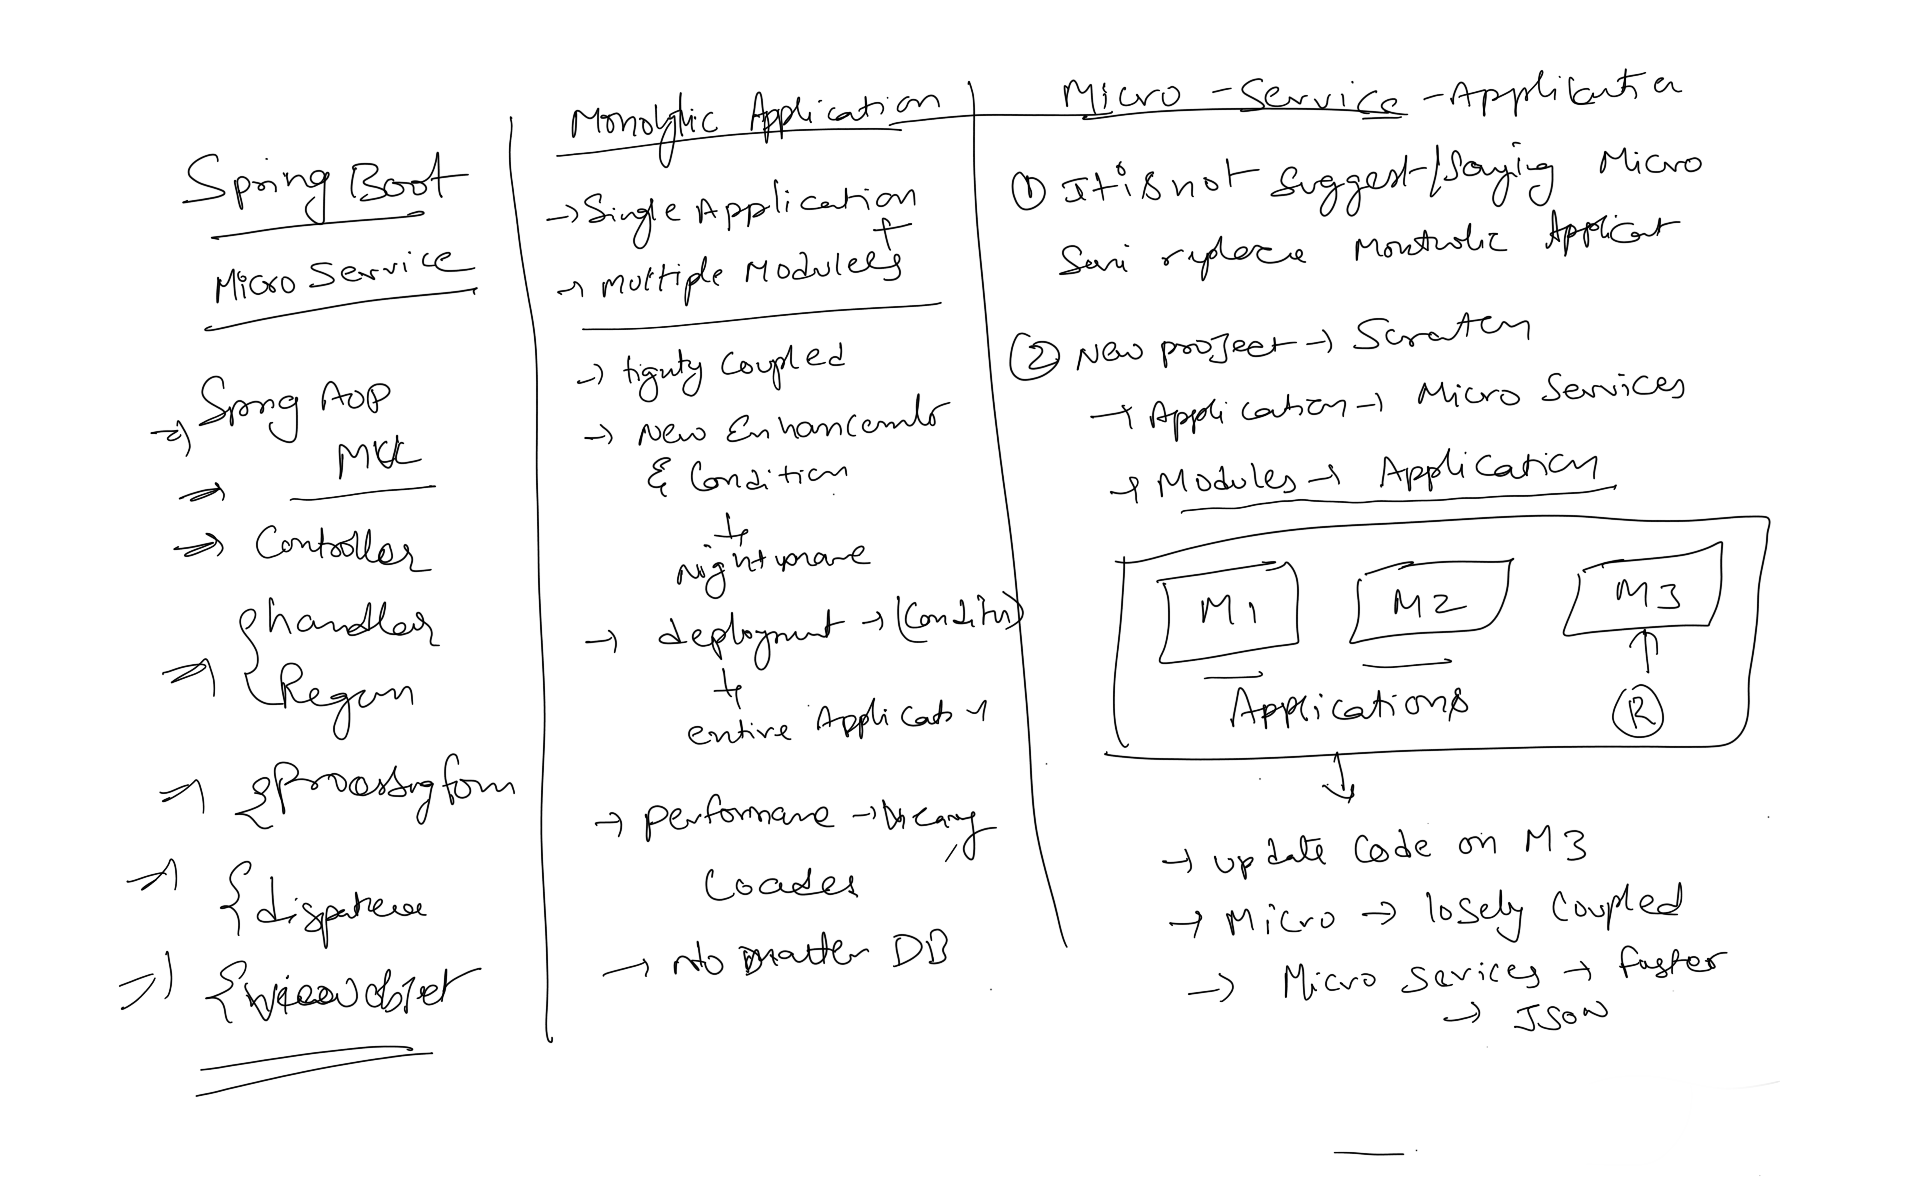 Spring Boot
Micro Service
→ Spring AOP
→ MVC
→ Controller
{ handler
→ { Regan
→ { Processing form
→ {
→ { view object
Monolythic Application
→ Single Application
+
→ multiple Modulees
→ tiguty Coupled
→ New Enhancements
& Condition
↓
nightmare
→ deployment → (Condition)
↓
entire Application
→ performane →
Loades
→ No matter DB
Micro - Service - Application
① It is not Suggest/Saying Micro
replace Applicat
② New project → Scratch
→ Application → Micro Services
→ Modules → Application
M1 M2 M3
Applications R
→ update Code on M3
→ Micro → losely Coupled
→ Micro Sevices → faster
→ JSON